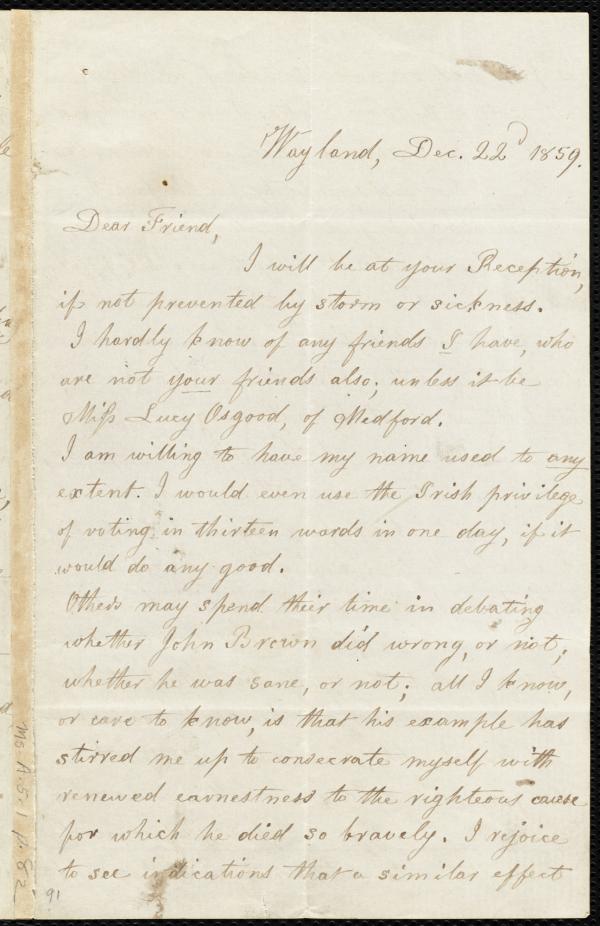 Wayland, Dec. 22d 1859.
Dear Friend,
I will be at your Reception,
if not prevented by storm or sickness.
I hardly know of any friends I have, who
are not your friends also; unless it be
Miss Lucy Osgood, of Medford.
I am willing to have my name used to any
extent. I would even use the Irish privilege
of voting in thirteen wards in one day, if it
would do any good.
Others may spend their time in debating
whether John Brown did wrong, or not;
whether he was sane, or not; all I know,
or care to know, is that his example has
stirred me up to consecrate myself with
renewed earnestness to the righteous cause
for which he died so bravely. I rejoice
to see indications that a similar effect
Ms. A.5.1 p. 82
91